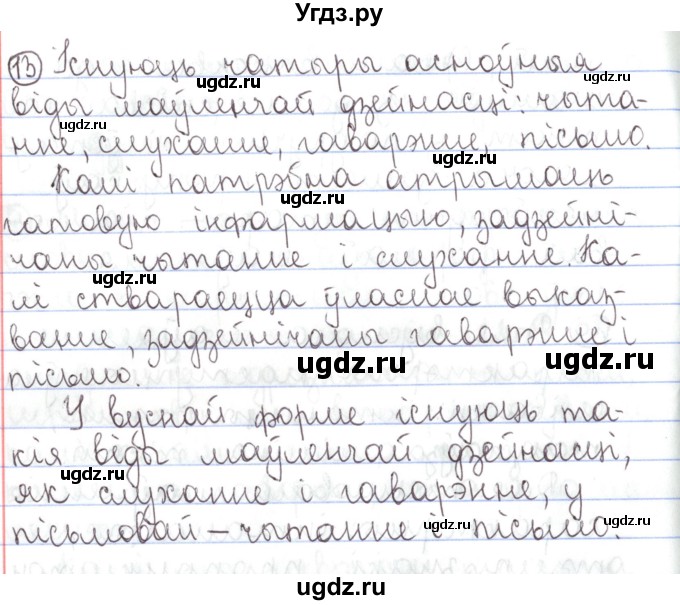 Угдз.ру
13 Існуюць чатыры асноўныя
віды маўленчай дзейнасці: чыта-
нне, слуханне, гаварэнне, пісьмо.
Калі патрэбна атрымаць
гатовую інфармацыю, задзейні-
чаны чытанне і слуханне. Ка-
лі ствараецца ўласнае выказ-
ванне, задзейнічаны гаварэнне і
пісьмо.
У вуснай форме існуюць та-
кія віды маўленчай дзейнасці,
як слуханне і гаварэнне, у
пісьмовай – чытанне і пісьмо.
ugdz.ru
ugdz.ru
ugdz.ru
ugdz.ru
ugdz.ru
ugdz.ru
ugdz.ru
ugdz.ru
ugdz.ru
ugdz.ru
ugdz.ru
ugdz.ru